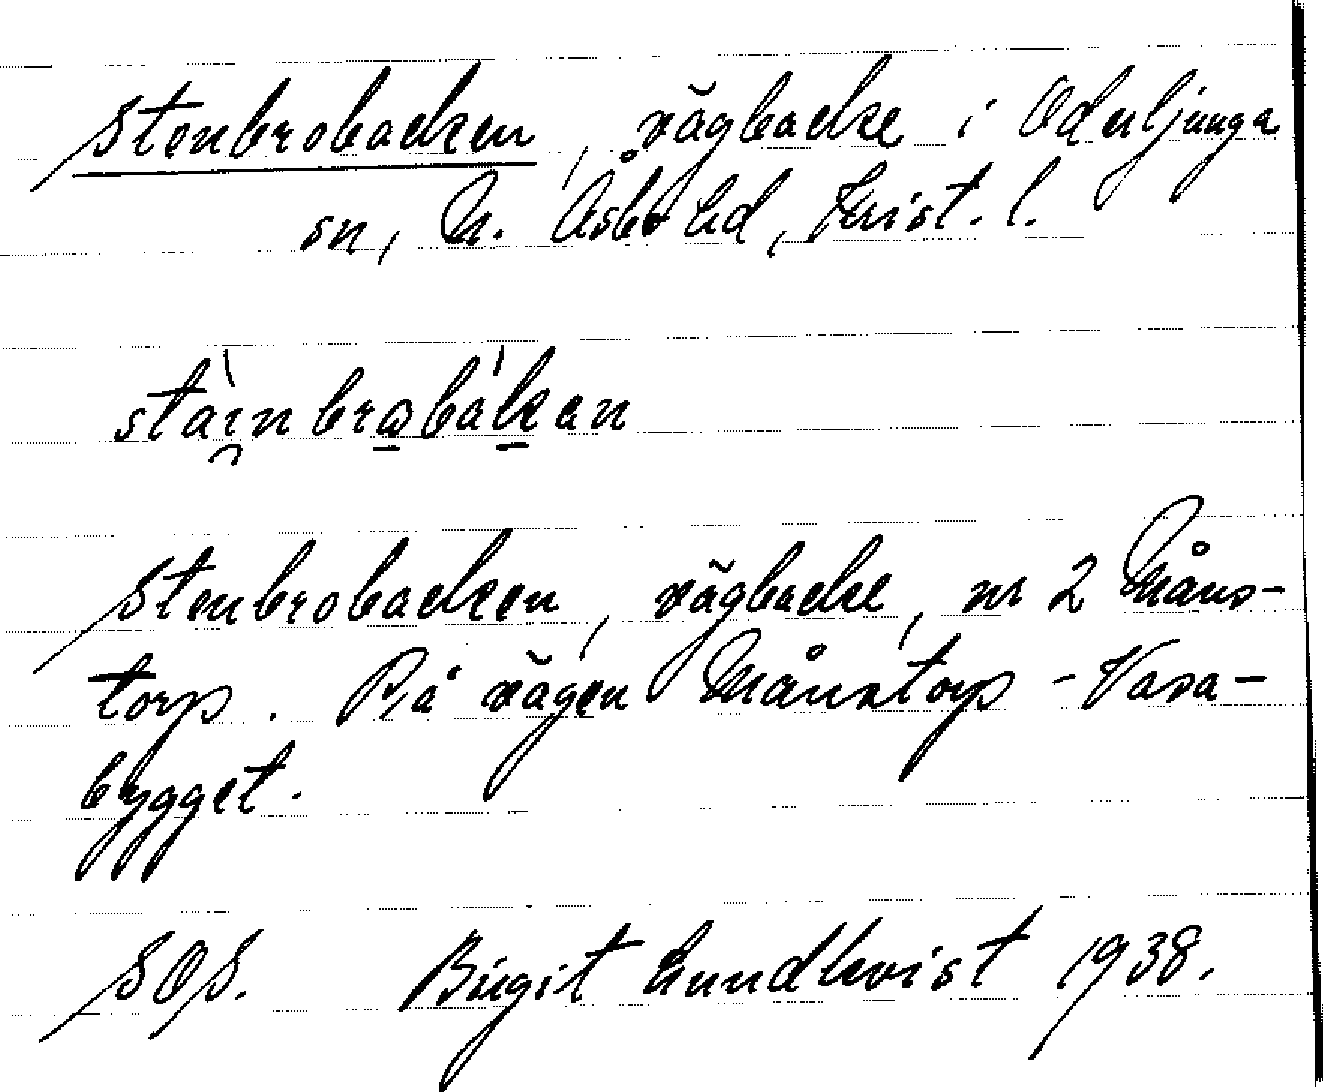 Stenbrobacken, vägbacke i Oderljunga
sn, N. Åsbo hd, Krist. l.
Stenbrobacken, vägbacke, nr 2 Måns-
torp. På vägen Månstorp - Vasa-
bygget.
SOS. Birgit Lundkvist 1938.